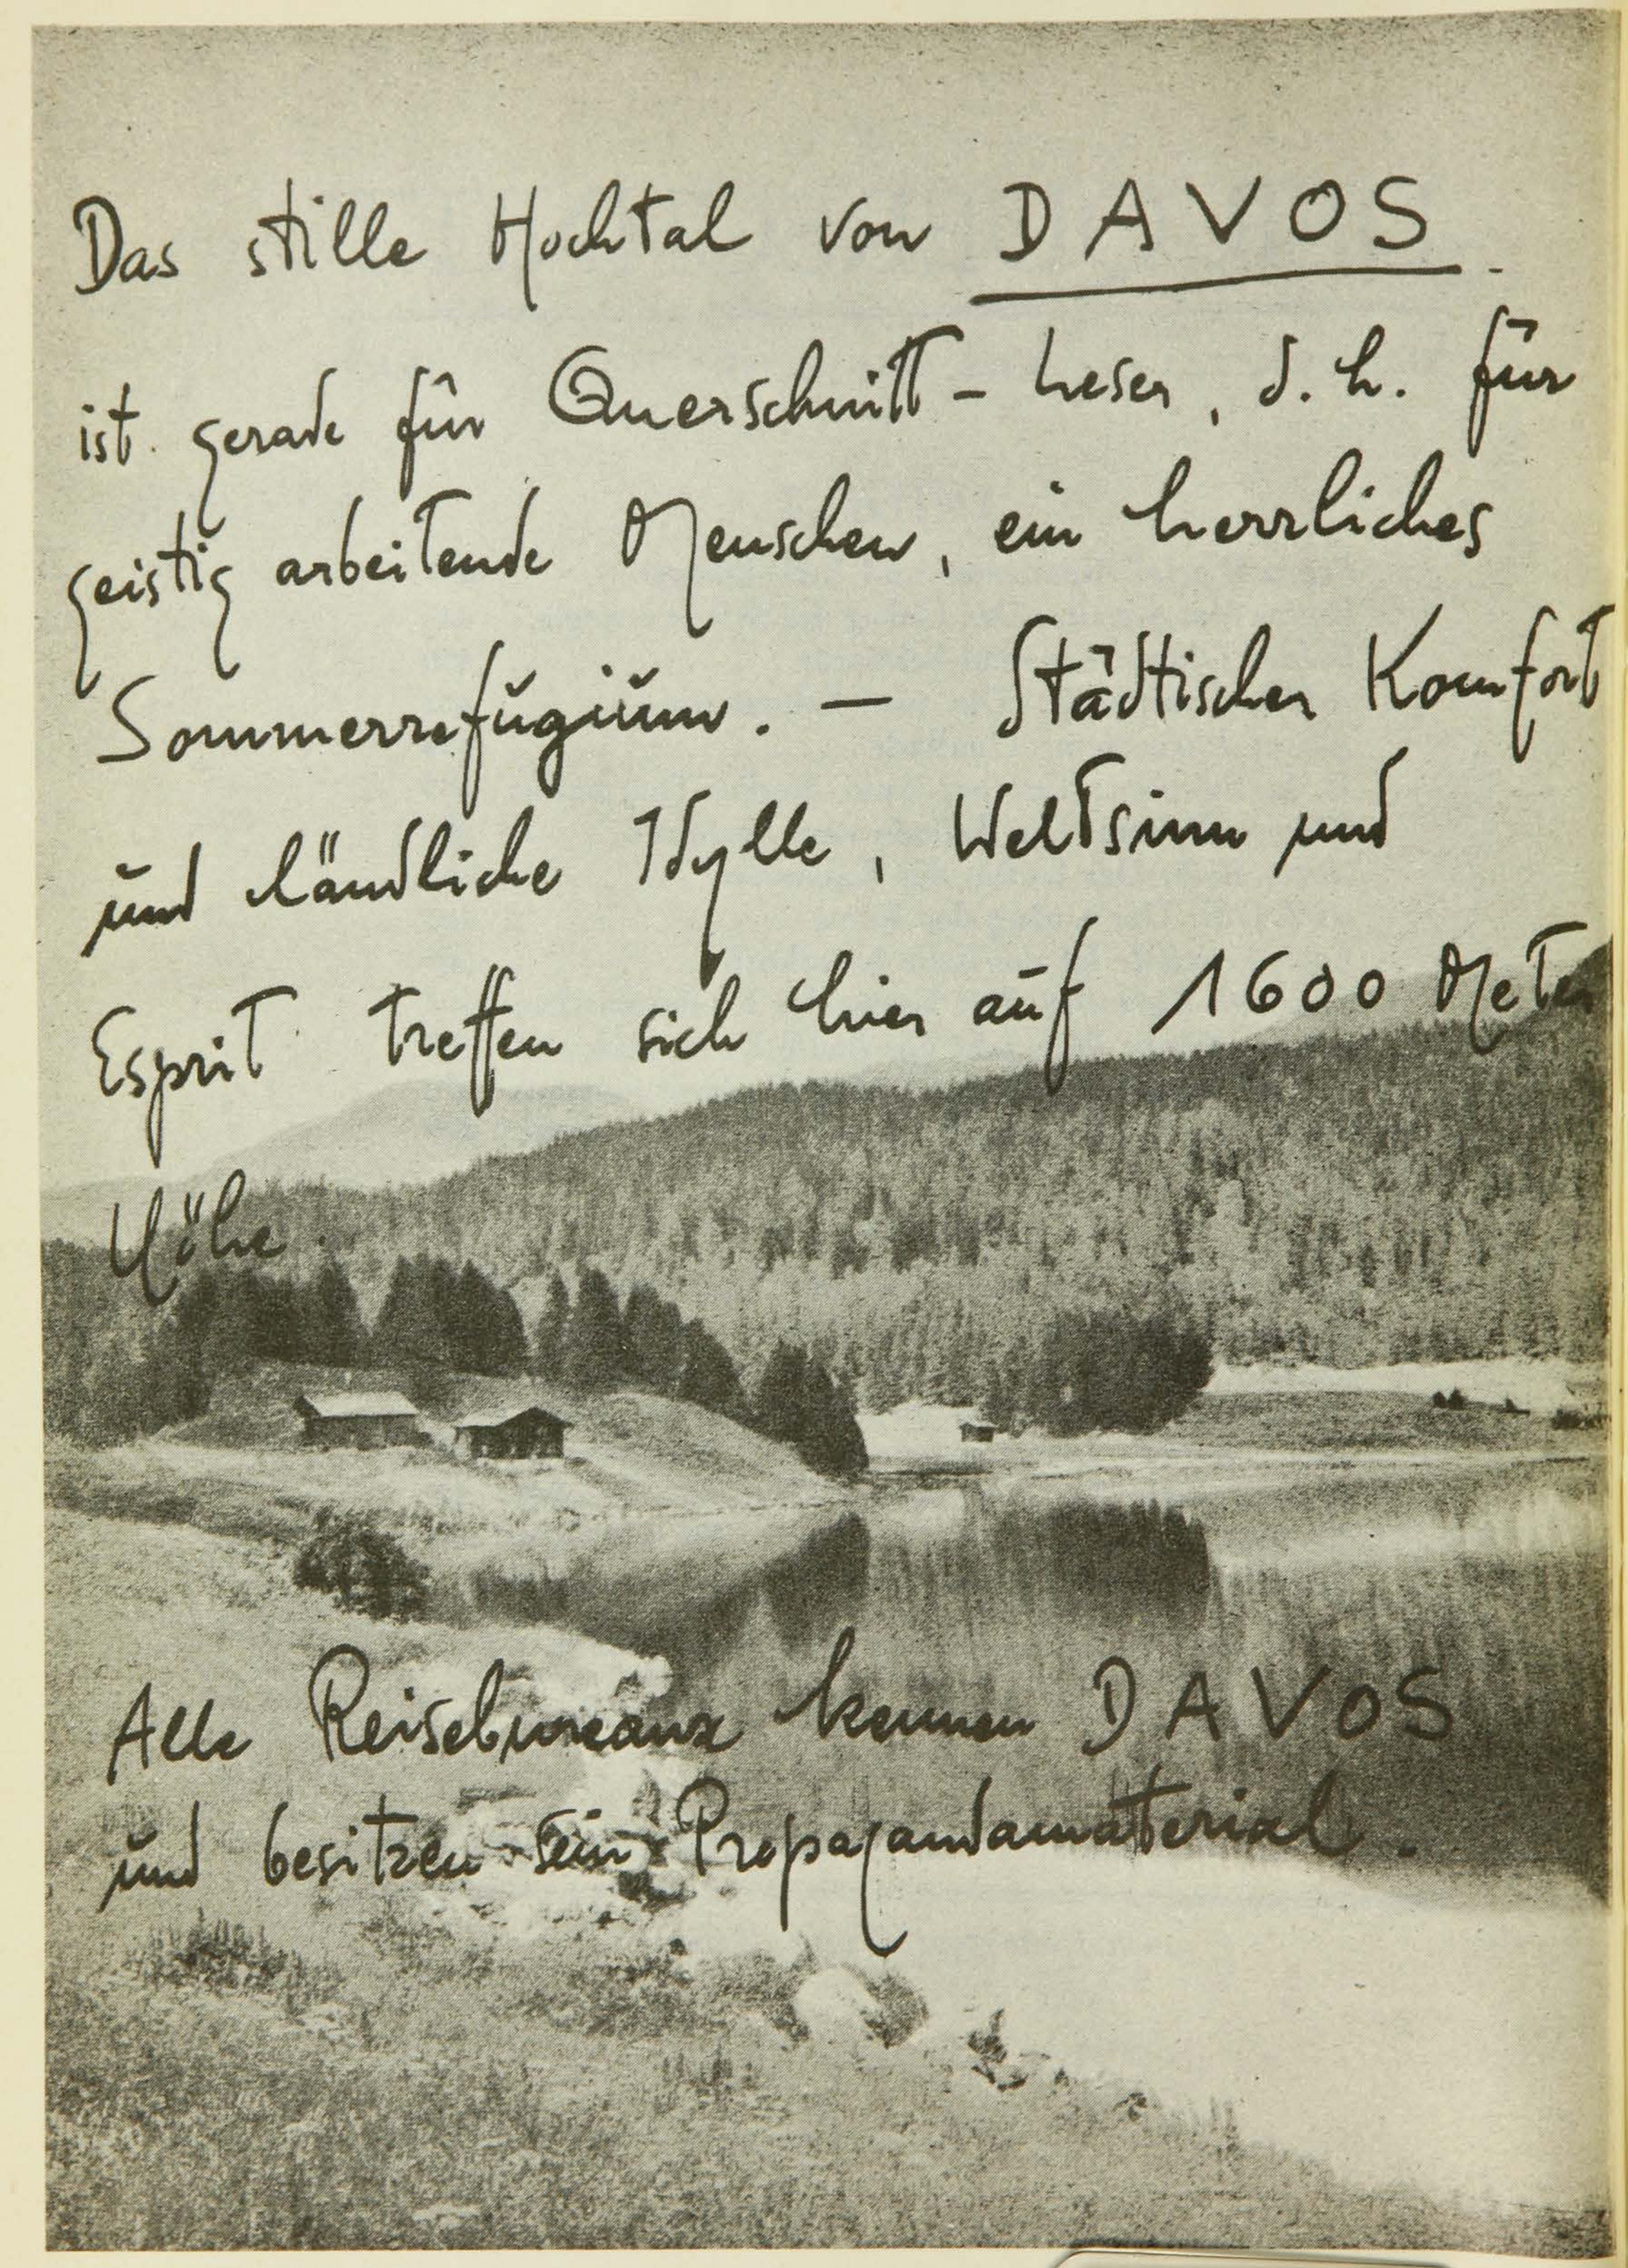 Das stille Hochtal von DAVOS
ist gerade für Querschnitt - Leser, d. h. für
geistig arbeitende Menschen, ein herrliches
Sommerrefugium. – Städtischer Komfort
und ländliche Idylle, Weltsinn und
Esprit treffen sich hier auf 1600 Meter
Höhe.
Alle Reisebureaux kennen DAVOS
und besitzen sein Propagandamaterial.